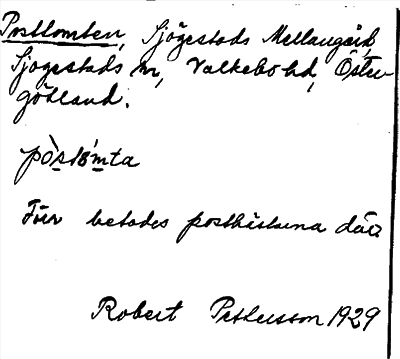 Posttomten, Sjögestads Mellangård,
Sjögestads sn, Valkebo hd, Öster-
götland.
pòstó̀mta
Förr betades posthästarna där
Robert Pettersson 1929